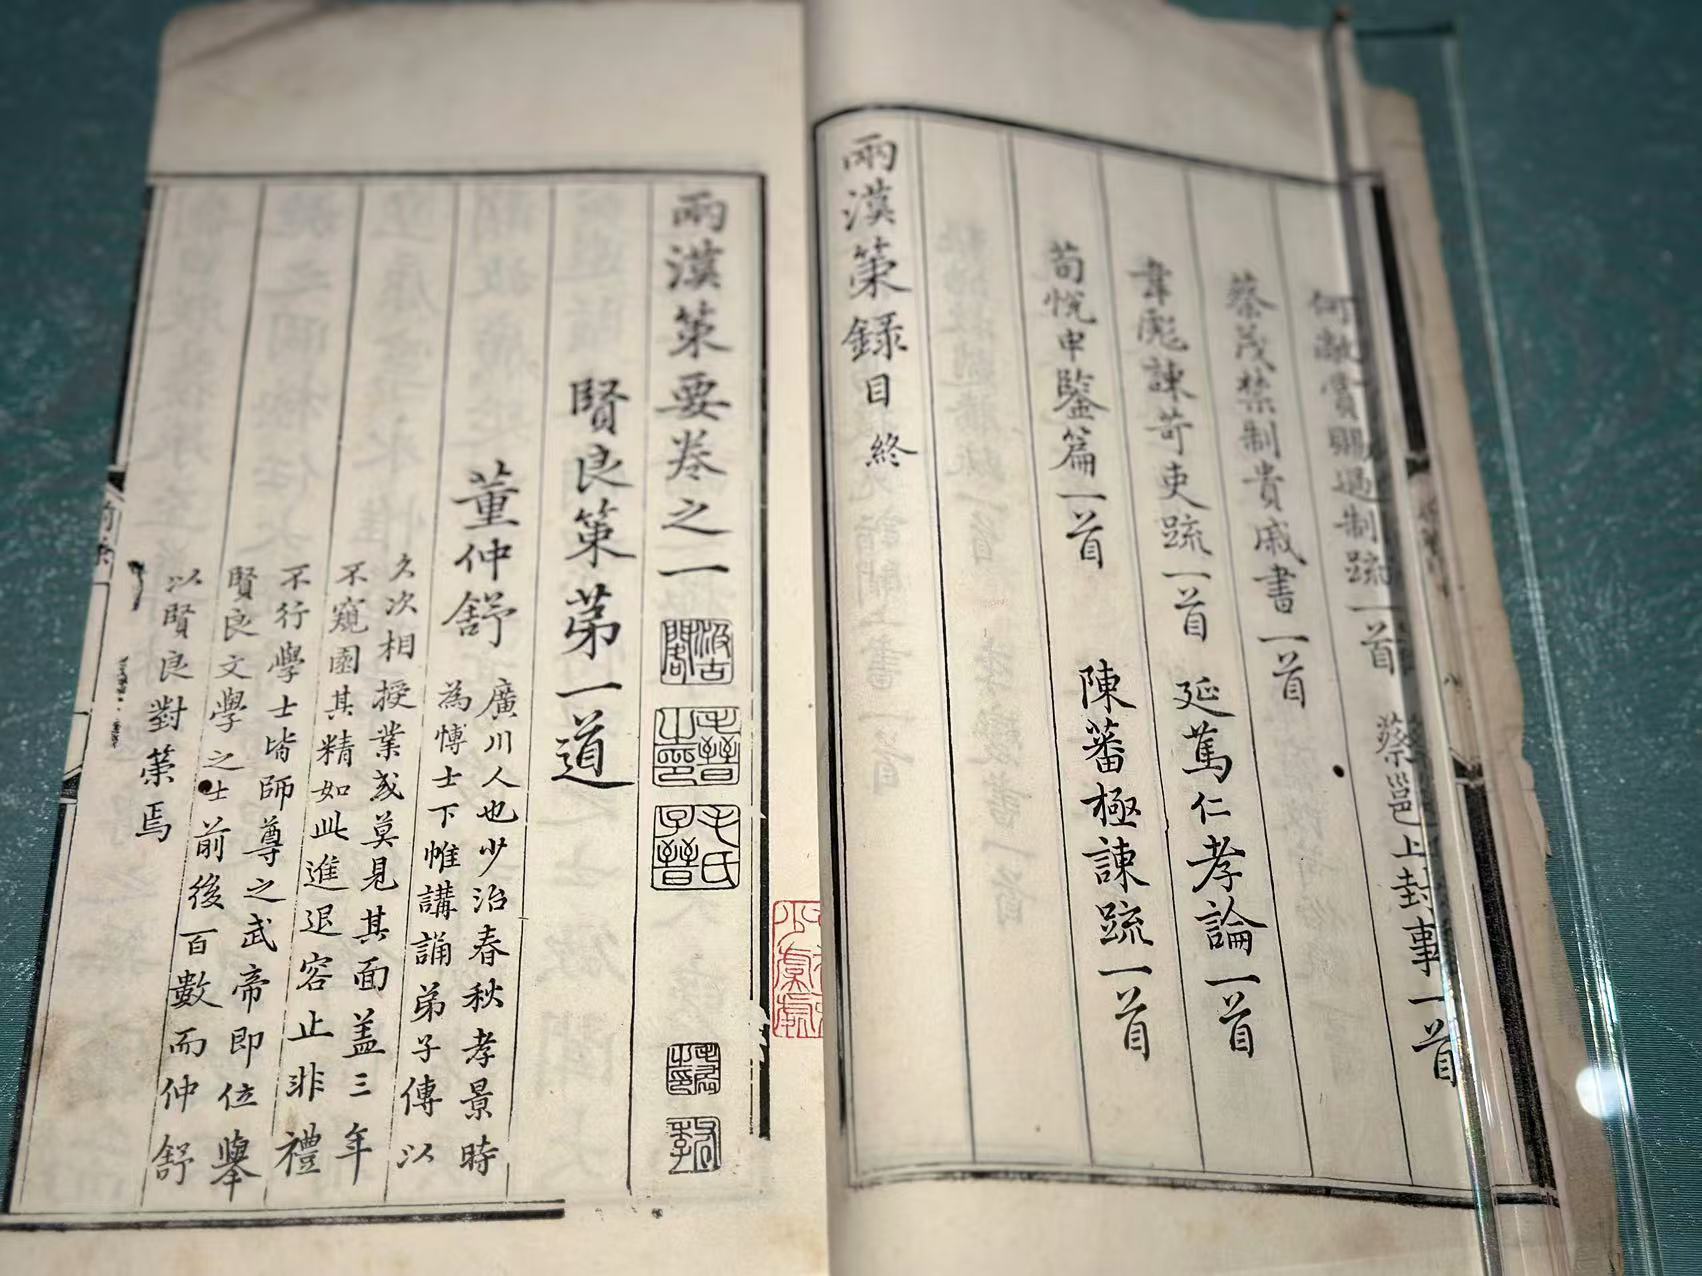 何敞賞賜過制疏一首 蔡邕上封事一首
蔡茂禁制貴戚書一首
韋彪諫苛吏疏一首 延篤仁孝論一首
荀悅申鑒篇一首 陳蕃極諫疏一首
兩漢策錄目終
兩漢策要卷之一
汲古閣
毛晉之印
毛氏子晉
賢良策第一道
董仲舒
廣川人也少治春秋孝景時
為博士下帷講誦弟子傳以
久次相授業或莫見其面蓋三年
不窺園其精如此進退容止非禮
不行學士皆師尊之武帝即位舉
賢良文學之士前後百數而仲舒
以賢良對策焉